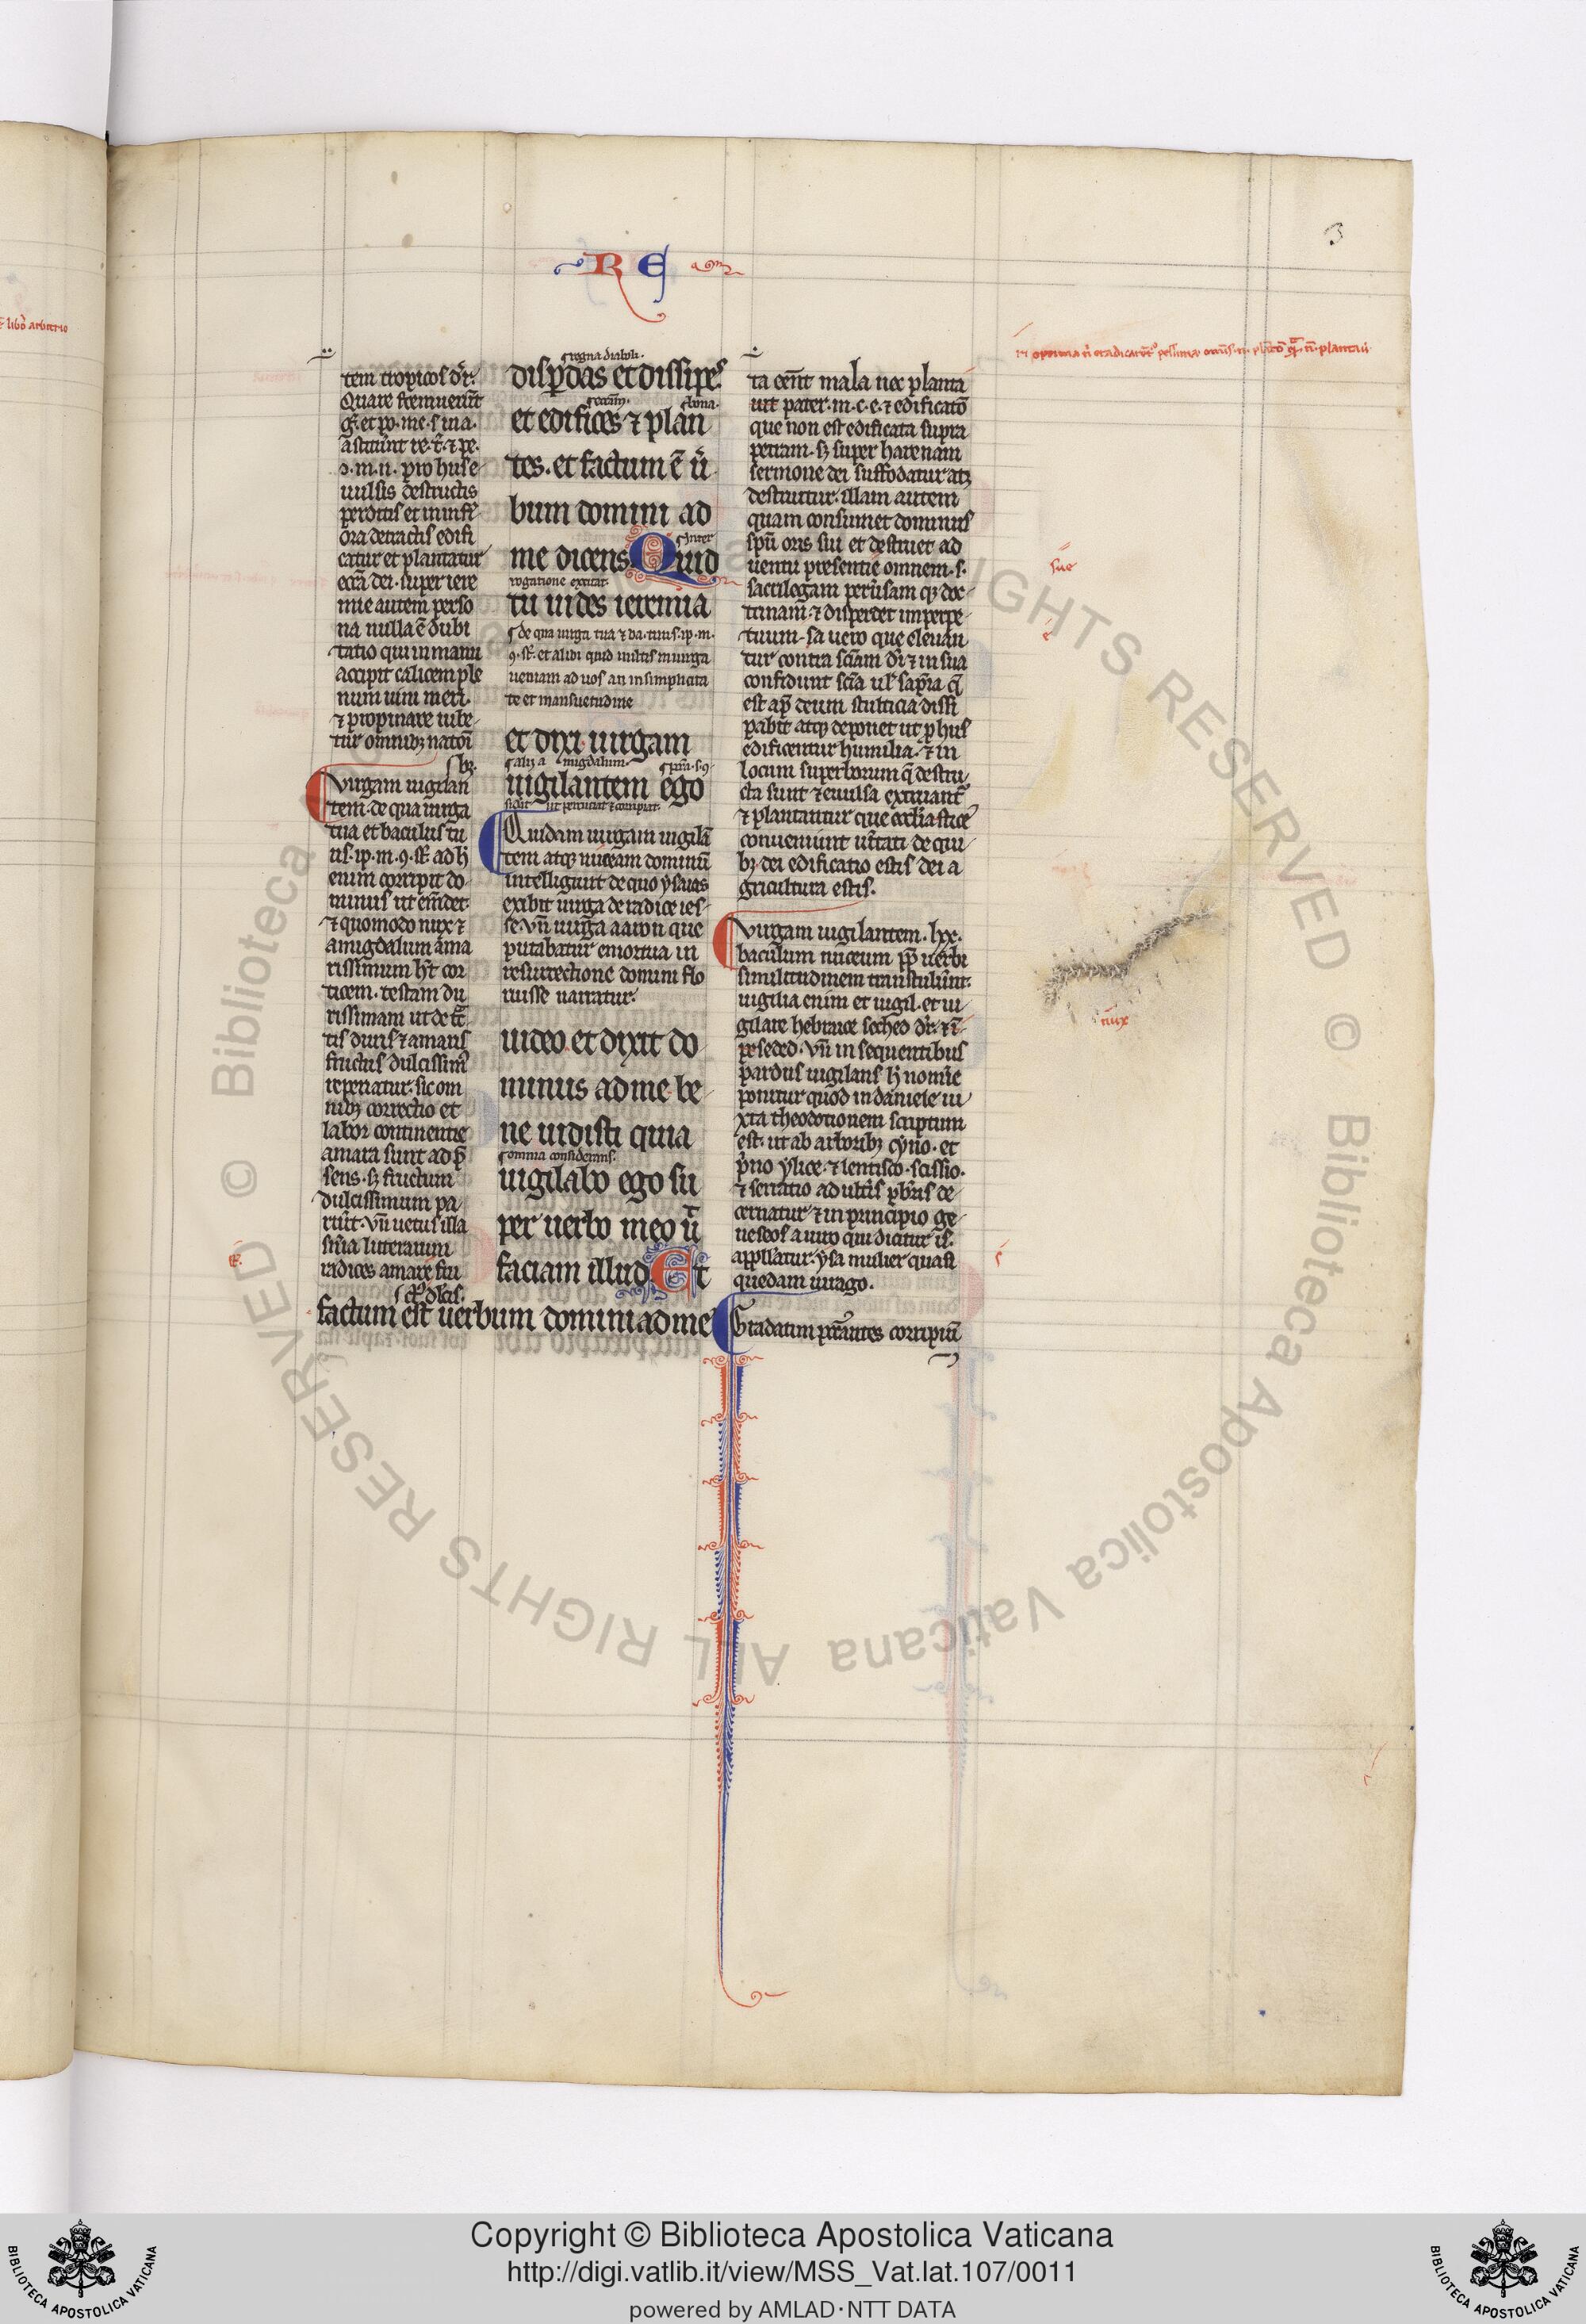 RE
3
tem tropicos dr̄.
Quare fremuerūt
g̃. et po. me. s ina.
astiterūt re. t̃. ⁊ pe.
uulsis destructis
perditis et in infe
ora detractis edifi
catur et plantatur
eccā dei. super iere
mie autem perso
na nulla ē dubi
tatio qui in manu
accipit calicem ple
num uini meri.
⁊ propinare iube
tur omnibꝫ natōi
Uirgam uigilan
tem. de qua uirga
tua et baculus tu
us. ip. m. ꝯ. st̄. ad h̄
enim corripit do
minus ut emēdet
⁊ quomodo nux ⁊
amigdalum ama
rissimum h̄t cor
ticem. testam du
rissimam ut detc̄
tis duris ⁊ amaris
fructus dulcissimꝰ
reperiatur. sic om
nibꝫ correctio et
labor continentie
amara sunt ad p̄
sens. sꝫ fructum
dulcissimum pa
riūt. vn̄ uetus illa
sn̄ia litterarum
radices amare fru
regna diaboli.
disꝑdas et dissipes
bona.
et edifices ⁊ plan
tes. et factum ē ū
bum domini ad
inter
me dicens Quid
rogatione excitat
tu uides ieremia
de qua uirga tua ⁊ ba. tuus. ip. m.
ꝯ. st̄. et alibi quid uultis in uirga
ueniam ad uos an in simplicita
te et mansuetudine
et dixi. uirgam
migdalum.
uigilantem ego
ut percutiat ⁊ corripiat.
Quidam uirgam uigilā
tem atqꝫ nuceam dominū
intelligunt de quo ysaias
exibit uirga de radice ies
se. vn̄ uirga aaron que
putabatur emortua in
resurrectione domini flo
ruisse narratur.
uideo et dixit do
minus ad me be
ne uidisti quia
omnia considerans.
uigilabo ego su
per uerbo meo ū
faciam illud Et
factum est uerbum domini ad me
ta erūt mala nec planta
uit pater. m. c. e. ⁊ edificatō
que non est edificata supra
petram. sꝫ super harenam
sermone dei suffodatur atqꝫ
destruitur. illam autem
quam consumet dominus
spū oris sui et destruet ad
uentu presentie omnem. s.
sacrilegam peruersam qꝫ doc
trinam. ⁊ disperdet inperpe
tuum. ea uero que eleuan
tur contra sciam dī ⁊ in sua
confidunt scia ul̄ sapīa q̄
est ap̄ deum stulticia dissi
pabit atqꝫ deponet ut ꝑ hus
edificentur humilia. ⁊ in
locum superborum q̄ destru
cta sunt ⁊ euulsa extruantᷣ
⁊ plantantur que eccl̄iastice
conueniunt ūitati de qui
bꝫ dei edificatio estis dei a
gricultura estis.
Uirgam uigilantem. lxx.
baculum nuceum ꝓp̄ uerbi
similitudinem transtulūnt.
uigilia enim et uigil. et ui
gilare hebraice soched dr̄. ⁊
seced. Vn̄ in sequentibus
pardus uigilans h̄ nomīe
ponitur quod in daniele iu
xta theodotionem scriptum
est. ut ab arboribꝫ cyno. et
p̄no ylice. ⁊ lentisco. scissio.
⁊ serratio ad ultīs ꝑbris de
cernatur ⁊ in principio ge
neseos a uiro qui dicitur is.
appellatur. ysa mulier quasi
quedam uirago.
Gradatim ꝑcrāntes corripiū
sue
nux
Copyright © Biblioteca Apostolica Vaticana
http://digi.vatlib.it/view/MSS_Vat.lat.107/0011
powered by AMLAD·NTT DATA
BIBLIOTECA APOSTOLICA VATICANA
BIBLIOTECA APOSTOLICA VATICANA
© Biblioteca Apostolica Vaticana ALL RIGHTS RESERVED